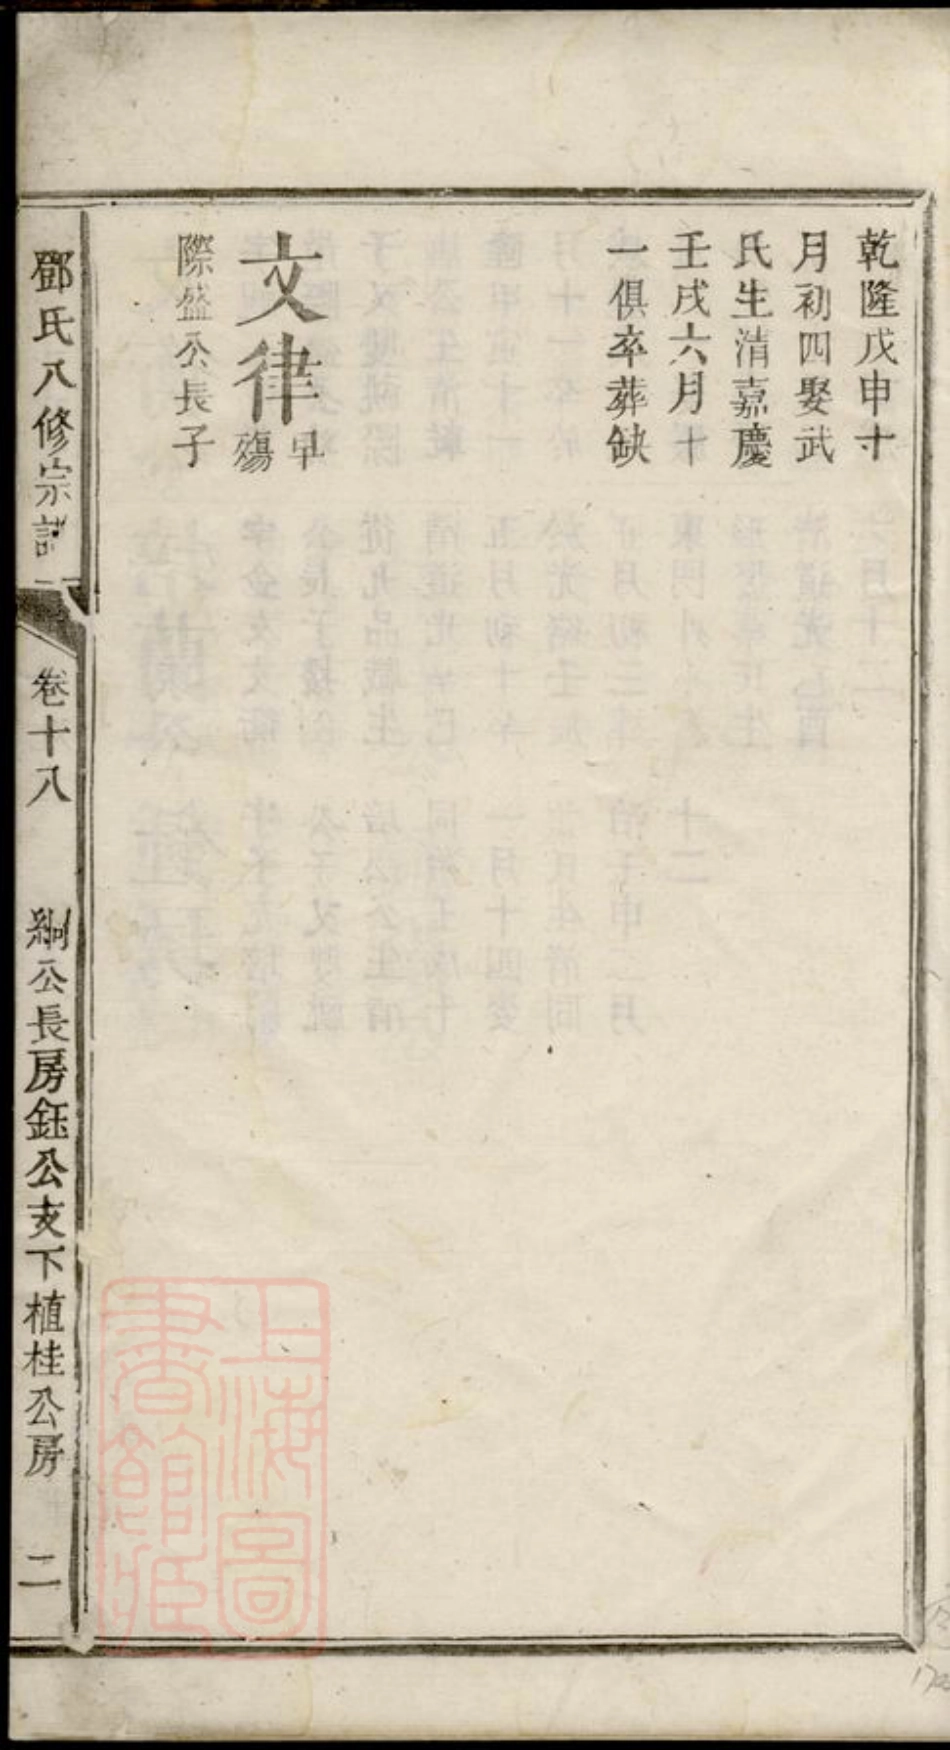 乾隆戊申十
月初四娶武
氏生清嘉慶
壬戌六月十
一俱卒葬缺
文律早殤
際盛公長子
鄧氏八修宗譜
卷十八
綱公長房鈺公支下植桂公房
二
上海圖書館藏